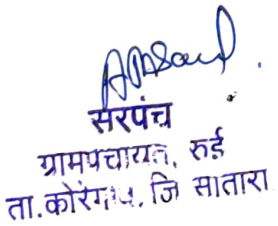 सरपंच
ग्रामपंचायत, रुई
ता.कोरेगाव, जि सातारा